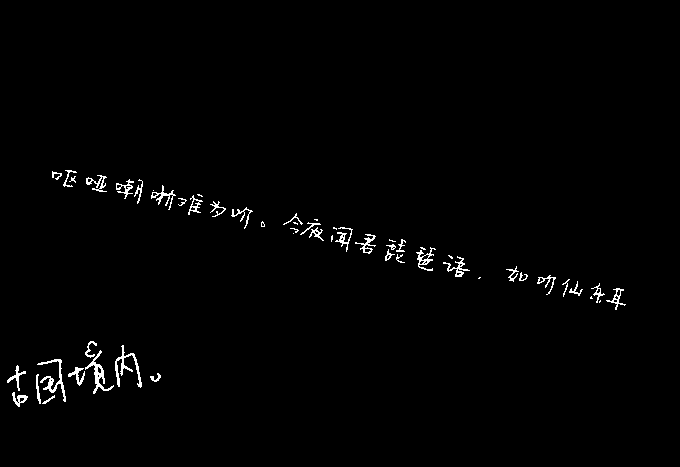 呕哑嘲哳难为听。今夜闻君琵琶语，如听仙乐耳
古国境内。